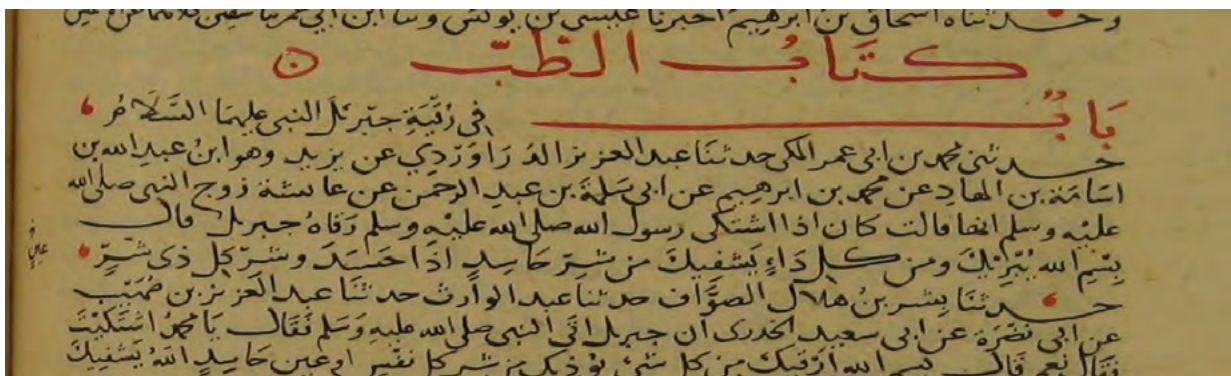 وحدثناه اسحاق بن ابرهيم اخبرنا عيسى بن يونس وثنا ابن ابي عمر ثنا سفين كلاهما
كتَابُ الطّبّ
بَابُ في رُقيَةِ جبرئل النبي عليهمَا السَّلامُ
حدثنى محمد بن ابى عمر المكى حدثنَا عبد العزيز الدرَاوَرْدِي عن يزيد وهو ابنُ عبدِ الله بن
اسَامَة بن الهادِ عن محمد بن ابرهيم عن ابى سَلمَة بن عبدِ الرحمنِ عن عائشة زوج النبي صلى الله
عليْه وسلم انها قالت كان اذا اشتكى رسول الله صلى الله عليْه وسلم رَقاهُ جبريل قال
بِسْمِ الله يُبْرِيْكَ ومن كل دَاءٍ يَشفيكَ من شرِّ حَاسِدٍ اذَا حَسَدَ وشرّ كل ذى شرٍّ
حدثنَا بِشر بنُ هلال الصوَّاف حدثنا عبد الوارث حدثنَا عبد العَزيز بن صُهَيْب
عن ابى نضرَة عن ابى سعيد الخدرى ان جبريل اتى النبى صلى الله عليه وَسَلم فقال يَا محمدُ اشتكيْتَ
فقَالَ نعم قَالَ بسم الله ارْقيكَ من كل شئ يوذيك من شر كل نفسٍ او عين حَاسِدٍ اللهُ يَشفيكَ